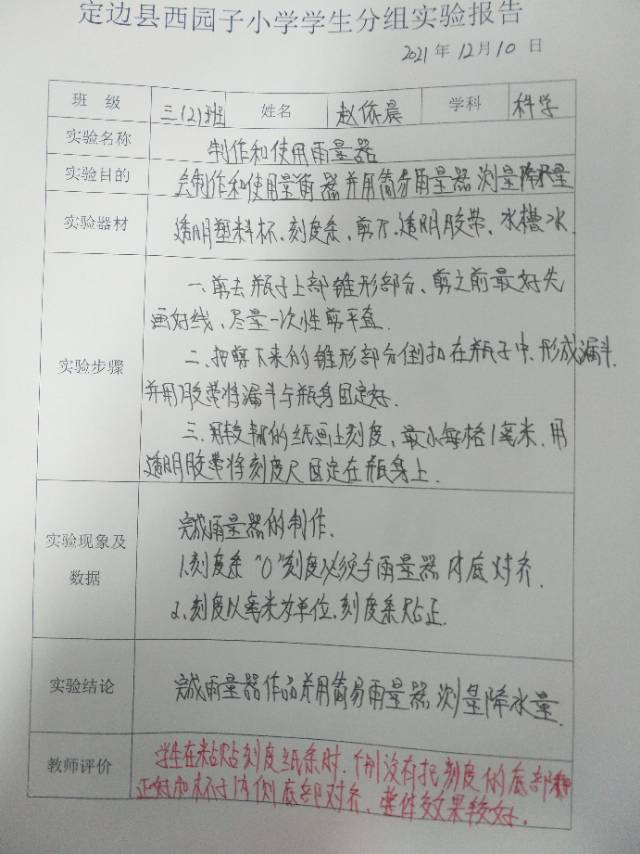 定边县西园子小学学生分组实验报告
2021年12月10日
班级 三(2)班 姓名 赵依晨 学科 科学
实验名称 制作和使用雨量器
实验目的 会制作和使用量雨器并用简易雨量器测量降水量
实验器材 透明塑料杯、刻度条、剪刀、透明胶带、水槽水
实验步骤
一、剪去瓶子上部锥形部分、剪之前最好先
画好线、尽量一次性剪平直.
二、把剪下来的锥形部分倒扣在瓶子中,形成漏斗.
并用胶带将漏斗与瓶身固定好.
三、用较的纸画上刻度,最小每格1毫米.用
透明胶带将刻度尺固定在瓶身上.
实验现象及
数据
完成雨量器的制作.
1.刻度条"0"刻度必须与雨量器内底对齐.
2、刻度以毫米为单位.刻度条贴正.
实验结论 完成雨量器作品并用简易雨量器测量降水量.
教师评价
学生在粘贴刻度纸条时,个别没有把刻度的底部
正好和杯子内侧底部对齐、整体效果较好.